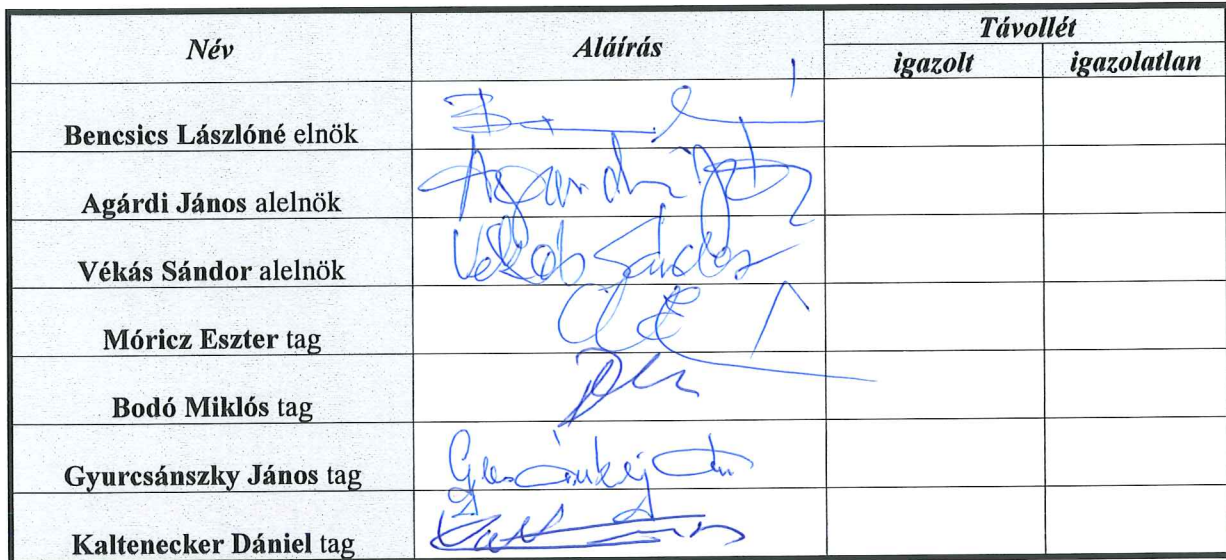 Név Aláírás Távollét
igazolt igazolatlan
Bencsics Lászlóné elnök
Agárdi János alelnök
Vékás Sándor alelnök Vékás Sándor
Móricz Eszter tag
Bodó Miklós tag
Gyurcsánszky János tag
Kaltenecker Dániel tag